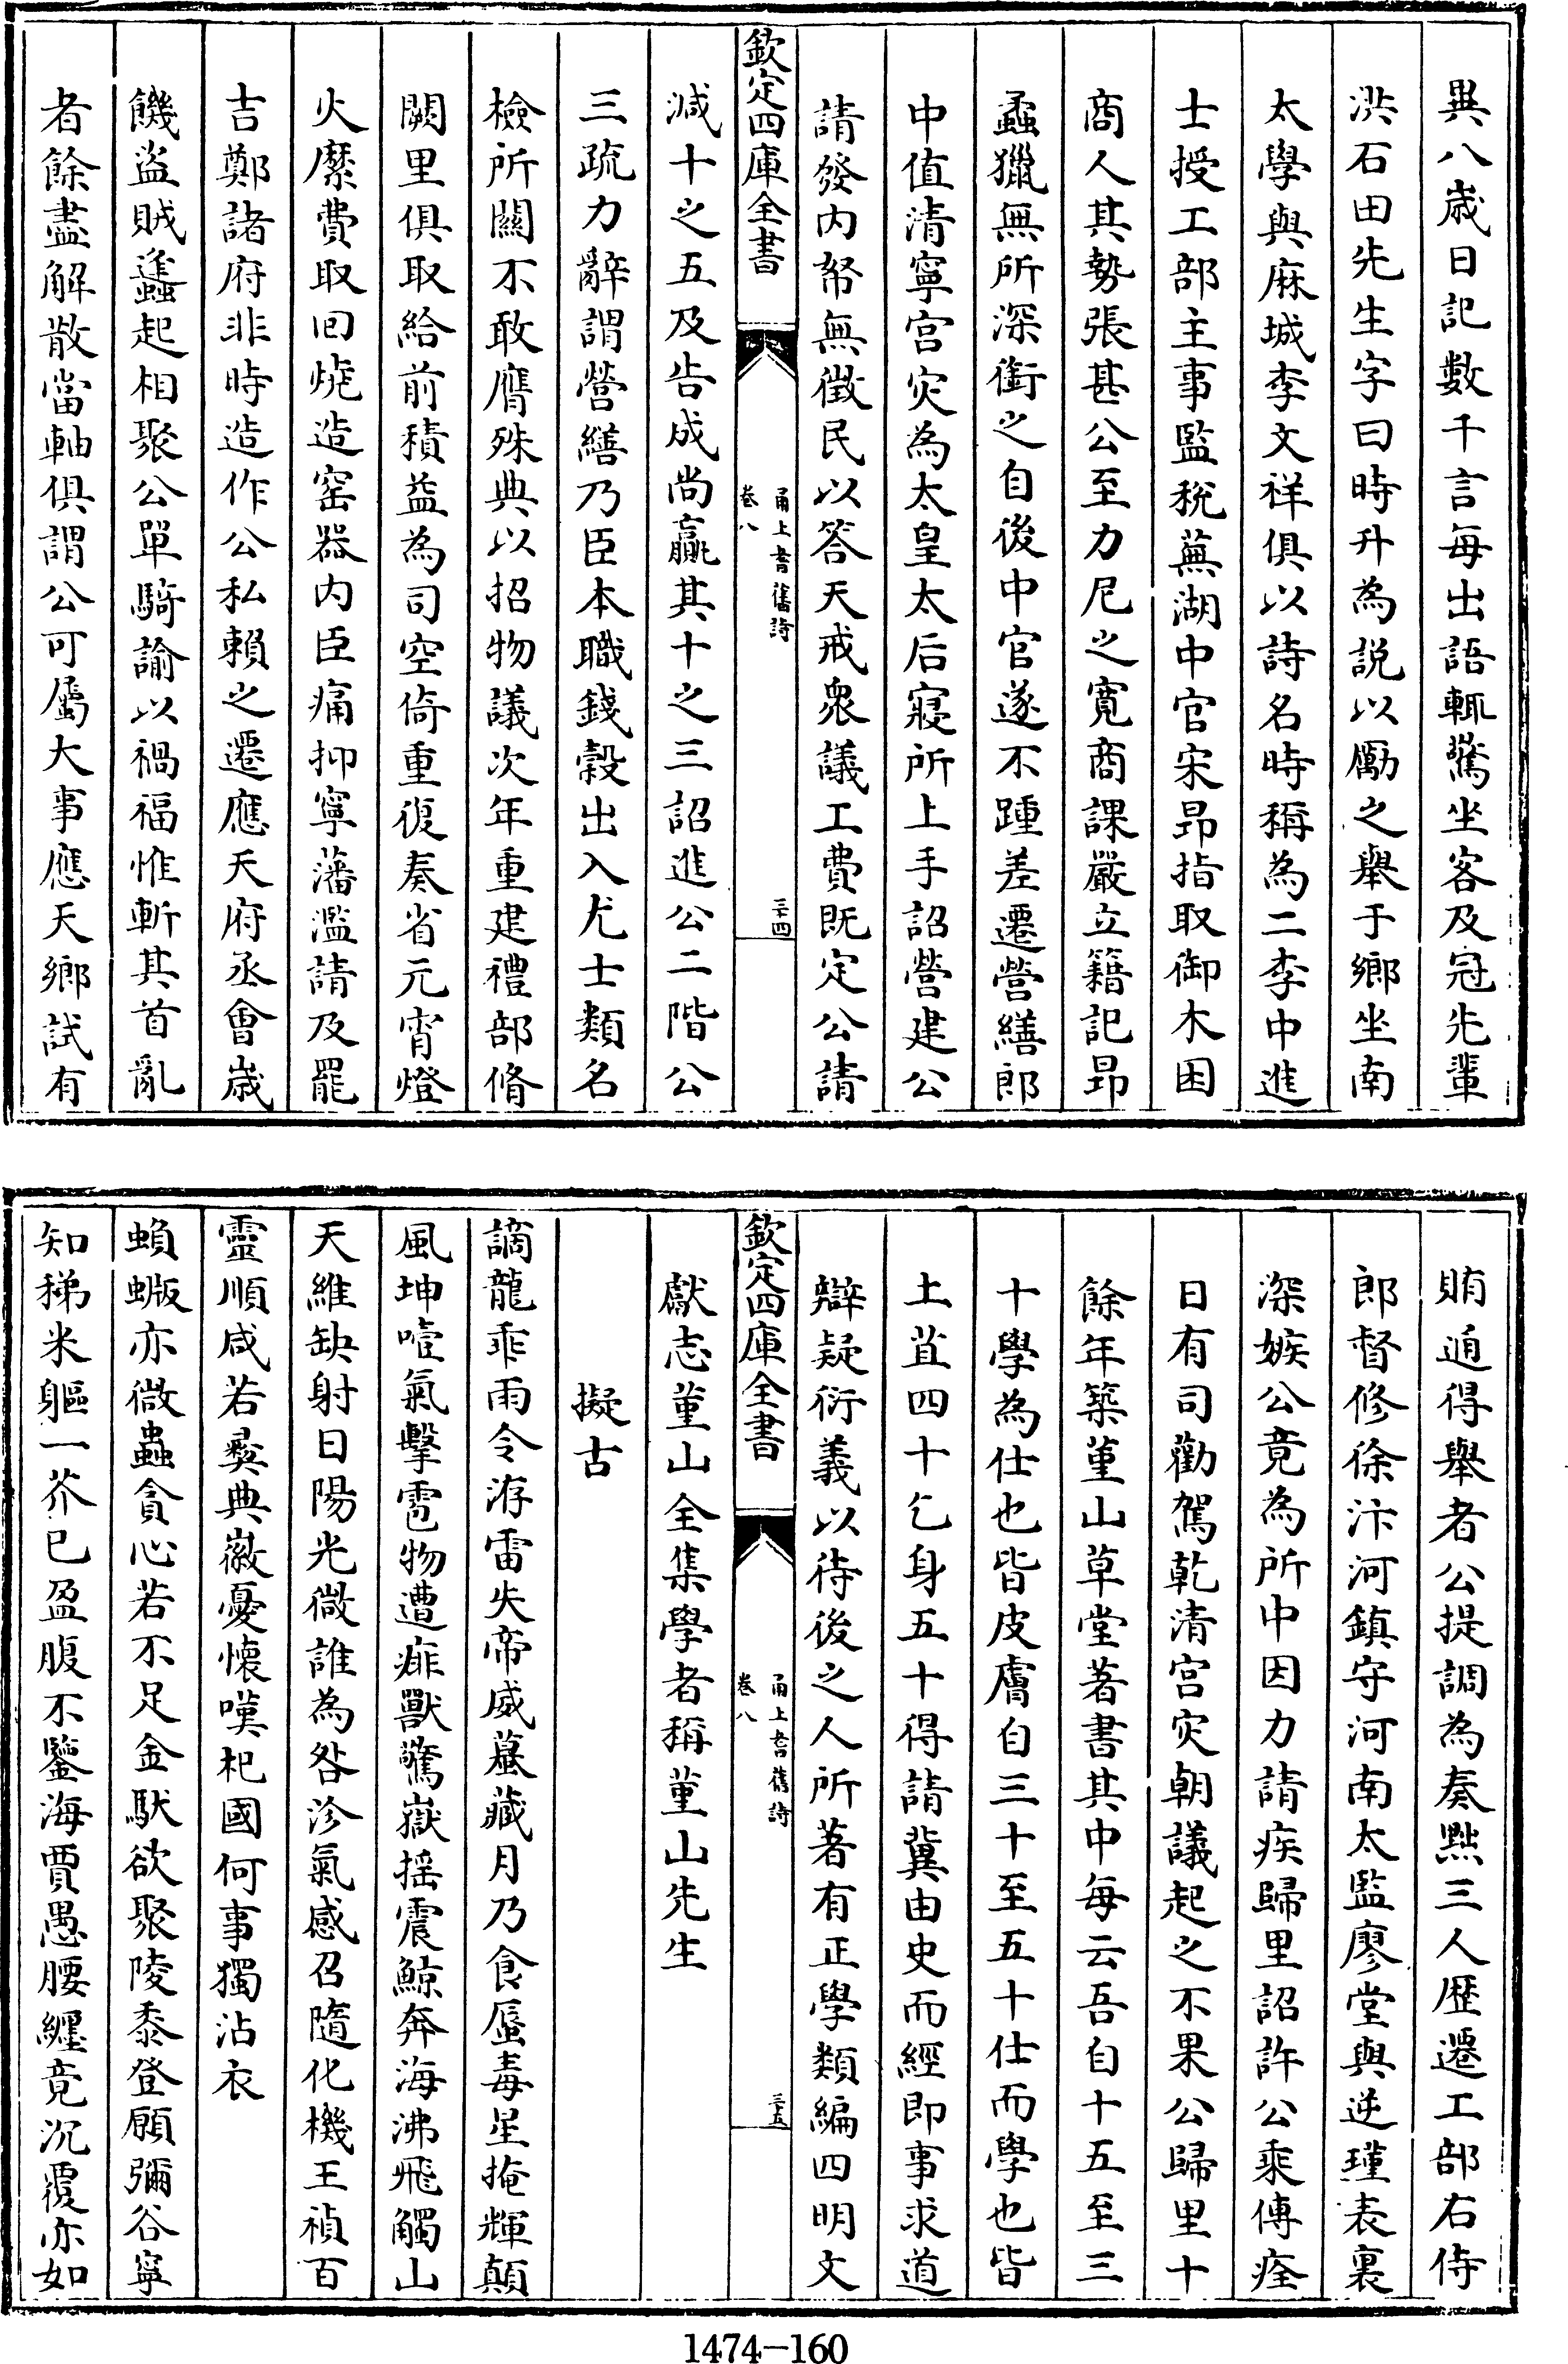 異八歲日記數千言每出語輒驚坐客及冠先輩
洪石田先生字曰時升為説以勵之舉于鄉坐南
太學與麻城李文祥俱以詩名時稱為二李中進
士授工部主事監稅蕪湖中官宋昂指取御木困
商人其勢張甚公至力尼之寛商課嚴立籍記昂
蟊獵無所深銜之自後中官遂不踵差遷營繕郎
中值清寧宮灾為太皇太后寢所上手詔營建公
請發内帑無徴民以答天戒衆議工費既定公請
欽定四庫全書
甬上耆舊詩
卷八
三十四
減十之五及告成尚贏其十之三詔進公二階公
三疏力辭謂營繕乃臣本職錢穀出入尤士類名
檢所關不敢膺殊典以招物議次年重建禮部脩
闕里俱取給前積益為司空倚重復奏省元宵燈
火縻費取回燒造窑器内臣痛抑寧藩濫請及罷
吉鄭諸府非時造作公私賴之遷應天府丞會歲
饑盗賊蠭起相聚公單騎諭以禍福惟斬其首亂
者餘盡解散當軸俱謂公可屬大事應天鄉試有
賄逈得舉者公提調為奏黜三人歴遷工部右侍
郎督修徐汴河鎮守河南太監廖堂與逆瑾表裏
深嫉公竟為所中因力請疾歸里詔許公乘傳痊
日有司勸駕乾清宮灾朝議起之不果公歸里十
餘年築菫山草堂著書其中每云吾自十五至三
十學為仕也皆皮膚自三十至五十仕而學也皆
土苴四十乞身五十得請冀由史而經即事求道
辯疑衍義以待後之人所著有正學類編四明文
欽定四庫全書
甬上耆舊詩
卷八
三十五
獻志菫山全集學者稱菫山先生
擬古
謫龍乖雨令洊雷失帝威蟇藏月乃食蜃毒星掩輝顛
風坤噎氣擊雹物遭痱獸驚嶽揺震鯨奔海沸飛觸山
天維缺射日陽光微誰為咎沴氣感召隨化機王禎百
靈順咸若彛典徽憂懷嘆杞國何事獨沾衣
蝜蝂亦微蟲貪心若不足金馱欲聚陵黍登願彌谷寧
知稊米軀一芥已盈腹不鑒海賈愚腰纒竟沉覆亦如
1474-160